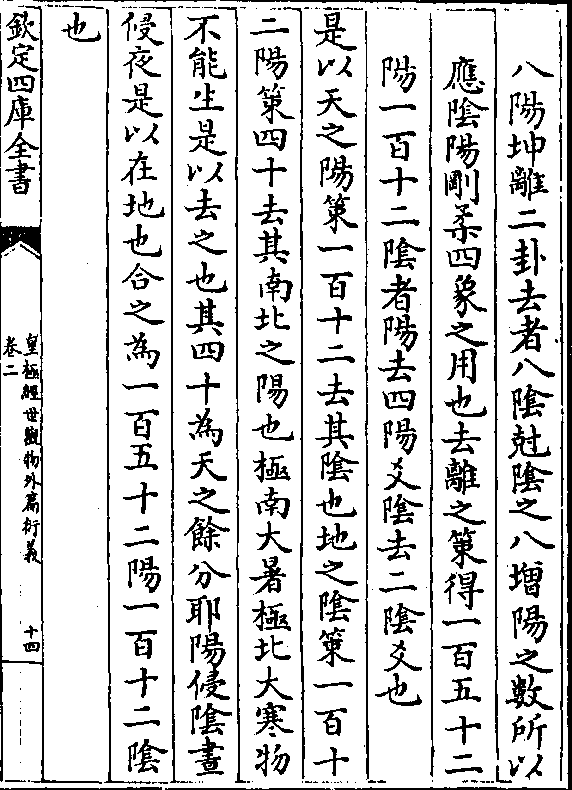 八陽坤離二卦去者八隂尅隂之八増陽之數所以
應隂陽剛柔四象之用也去離之策得一百五十二
陽一百十二隂者陽去四陽爻隂去二隂爻也
是以天之陽策一百十二去其隂也地之隂策一百十
二陽策四十去其南北之陽也極南大暑極北大寒物
不能生是以去之也其四十為天之餘分耶陽侵隂晝
侵夜是以在地也合之為一百五十二陽一百十二隂
也
欽定四庫全書
皇極經世觀物外篇衍義
卷二
十四